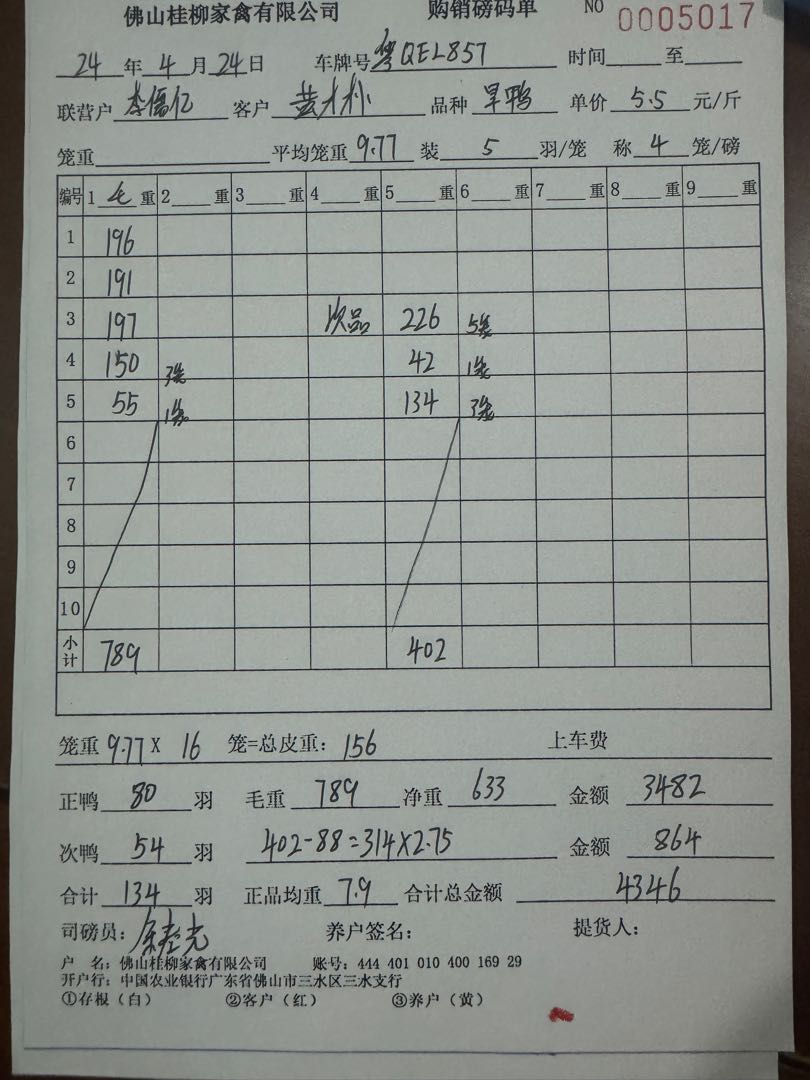 佛山桂柳家禽有限公司 购销磅码单 NO 0005017
24年4月24日 车牌号粤QEL857 时间 至
联营户李儒亿 客户黄才朴 品种旱鸭 单价5.5元/斤
笼重 平均笼重9.77 装5羽/笼 称4笼/磅
编号 1毛重 2 重 3 重 4 重 5 重 6 重 7 重 8 重 9 重
1 196
2 191
3 197 次品 226 5笼
4 150 3笼 42 1笼
5 55 1笼 134 3笼
6
7
8
9
10
小计 789 402
笼重9.77X 16 笼=总皮重：156 上车费
正鸭80羽 毛重789 净重633 金额3482
次鸭54羽 402-88=314X2.75 金额864
合计134羽 正品均重7.9 合计总金额4346
司磅员： 养户签名： 提货人：
户 名：佛山桂柳家禽有限公司 账号：444 401 010 400 169 29
开户行：中国农业银行广东省佛山市三水区三水支行
①存根（白） ②客户（红） ③养户（黄）